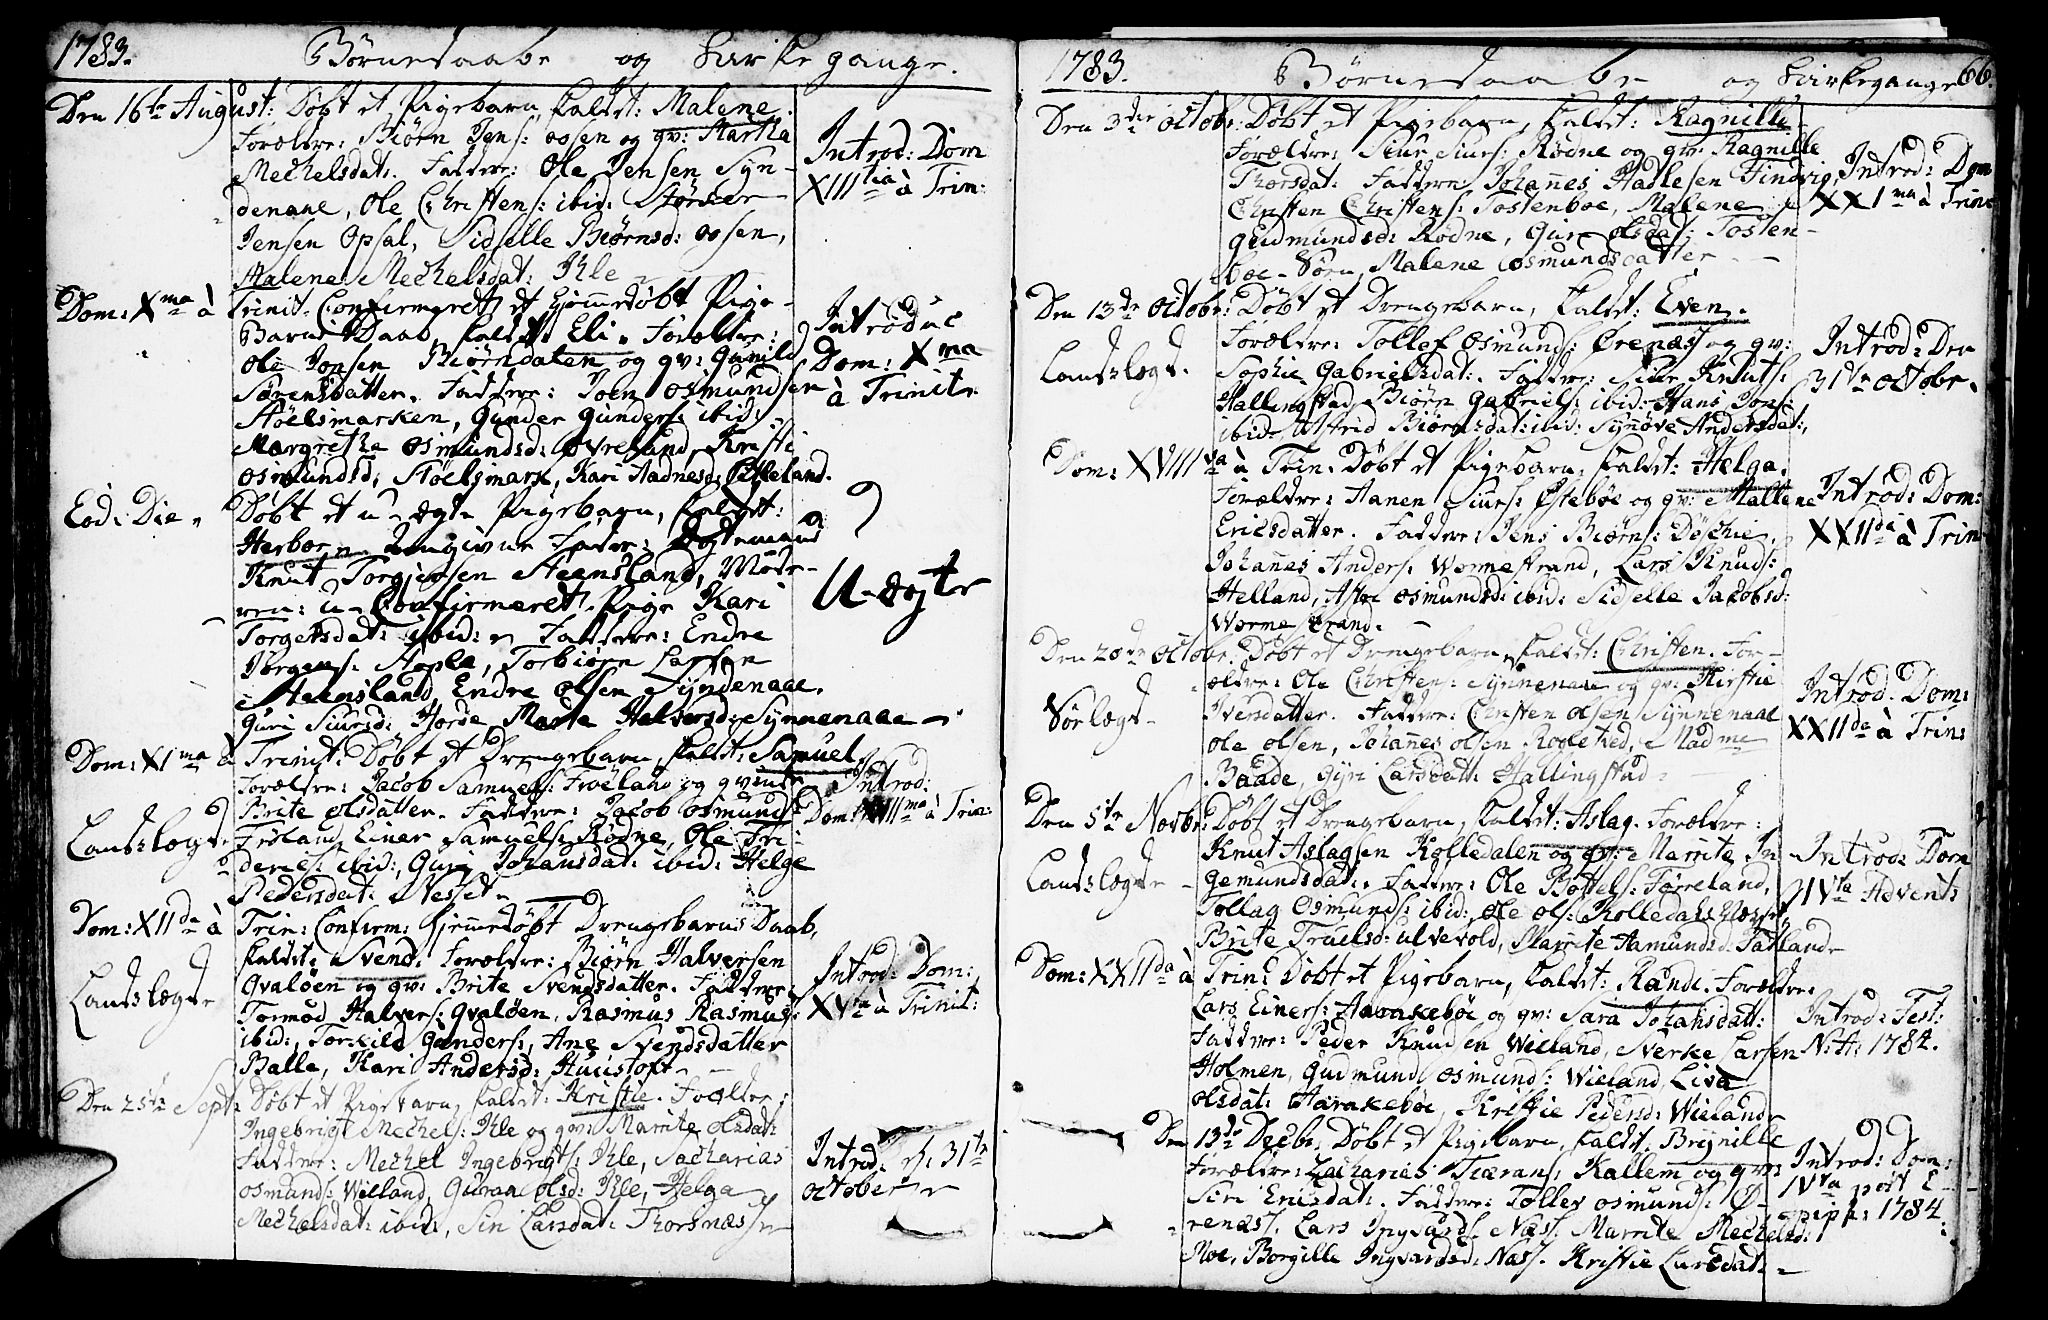 1783. Børnedaabe og Kirkegange.
Den 16te August: Døbt et Pigebarn, kaldet: Malene.
Forældre: Biørn Jens: oosen og gv: Martha
Mechelsdat: Faddere: Ole Jensen Syn-
denaae, Ole Christens: ibid:
Jensen Opsal, Sidselle Biørnsd: oosen,
Malene Mechelsdat: Ihle
Introd: Dom
XIIItia à Trin:
Dom: Xma à Trinit. Confirmeret et hjemmedøbt Pige-
Barns Daab, kaldet Eli. Forældre:
Ole Joensen Biørndalen og gv: Gunild
Sørensdatter. Faddere: Joen Osmundsen
Støelsmarken, Gunder Gunders: ibid:
Margrethe Osmundsd: Øvreland, Kristi
Osmundsd, Støelsmark, Kari Aadnesd:
Introduc
Dom: Xma
à Trinit.
Eod: Die Døbt et u-ægte Pigebarn, kaldet:
Herborg. Udgivne Fader: Ægtemand
Knut Torgiersen Steensland, Mode-
ren: u-Confirmeret Pige Kari
Torgersdat: ibid: Faddere: Endre
Jørgens: Stople, Torbiørn Larsen
Steensland, Endre Olsen Syndenaae.
Guri Siursd: Horde, Marta Halversd: Synnenaae
U-ægte
Dom: XIma à Trinit: Døbt et Drengebarn, kaldt: Samuel.
Forældre: Jacob Samuels: Frøeland og gv:
Brite Olsdatter. Faddere: Jacob Osmunds:
Frøland, Einer Samuels: Rødne, Ole Fri-
derics: ibid:, Guri Johansdat: ibid: Helge
Pedersdat: Nesset
Landslægt
Introd:
Dom: XVIIIma à Trin:
Dom: XIIda à Trin: Confirm: hjemmedøbt Drengebarns Daab,
kaldet: Svend. Forældre: Biørn Halversen
Qvaløen og gv: Brite Svendsdatter. Faddere:
Tormod Halvers: Qvaløen, Rasmus Rasmus:
ibid:, Torkild Gunders:, Ane Svendsdatter
Balle, Kari Andersd: Huustoft
Landslægt
Introd: Dom:
XVta à Trinit:
Den 25te Sept: Døbt et Pigebarn, kaldet: Kristie. Forældre:
Ingebrigt Mechels: Ihle og gv: Marite Olsdat:
Faddere: Mechel Ingebrigts: Ihle, Sacharias
Osmunds: Wiland, Guraae Olsd: Ihle, Helga
Mechelsdat: ibid:, Siri Larsdat: Thorsnæs
Introd: d: 31te
October
1783. Børnedaabe og Kirkegange 66.
Den 3die Octobr: Døbt et Pigebarn, kaldet: Ragnille
Forældre: Siur Siurs: Rødne og gv: Ragnille
Thorsdat: Faddere: Johannes Hadlesen Findvig,
Christen Christens: Tostenboe, Malene
Gudmundsd: Rødne, Guri Olsdat: Tosten-
boe. Sørn Malene Osmundsdatter
Introd: Dom
XXIma à Trin
Den 13de Octobr: Døbt et Drengebarn, kaldet: Even.
Forældre: Tollef Osmunds: Ørenæs og gv:
Sophie Gabrielsdat: Faddere: Siur Knuts:
Hallingstad, Biørn Gabriels: ibid: Hans Jons:
ibid:, Astrid Biørnsdat: ibid: Synøve Andersdat:,
Landslægt.
Introd: Den
31te Octobr.
Dom: XVIIIva à Trin: Døbt et Pigebarn, kaldet: Helga.
Forældre: Aanen Siurs: Østebøe og gv: Mallene
Ericsdatter. Faddere: Jens Biørns: Døschie,
Johannes Anders: Wormestrand, Lars Knuds:
Helland, Osmundsd: ibid: Sidselle Jacobsd:
Wormestrand.
Introd: Dom:
XXIIda à Trin
Den 20de Octobr: Døbt et Drengebarn, kaldet: Christen. For-
ældre: Ole Christens: Synnenaae og gv: Kirstie
Iversdatter. Faddere: Christen Olsen Synnenaae
Ole Olsen, Johannes Olsen Roaletved, Madme
Baade, Gyri Larsdat: Hallingstad
Sørlægt
Introd. Dom:
XXIIda à Trin:
Den 5te Novbr: Døbt et Drengebarn, kaldet: Aslag. Forældre:
Knut Aslagsen Kolledalen og gv: Marrite In-
gemundsdat: Faddere: Ole Bottels: Førreland,
Tollag Osmunds: ibid:, Ole Ols: Kolledals
Brite Truelsd: Ulvevold, Marrite Aamundsd: Fatland
Landslægt
Introd: Dom
IVta Advents
Dom: XXIIda à Trin: Døbt et Pigebarn, kaldet: Rande. Forældre:
Lars Einers: Aarakebøe og gv: Sara Johansdatt:
Faddere: Peder Knudsen Wieland, Sverke Larsen
Holmen, Gudmund Osmunds: Wieland, Liva
Olsdat: Aarakebøe, Kristie Pedersd: Wieland
Introd: Fest:
N: A: 1784.
Den 13de Decbr. Døbt et Pigebarn, kaldet. Brynille
Forældre: Zacharies Tiærans: Kallem og gv:
Siri Ericsdat: Faddere: Tollev Osmunds: Ø-
renæs. Lars Ingvards: Næs: Marrite Mechelsd:
Moe, Borgille Ingvardsd: Næs. Kristie Larsdat:
Introd: Dom:
IVta post E-
piph: 1784